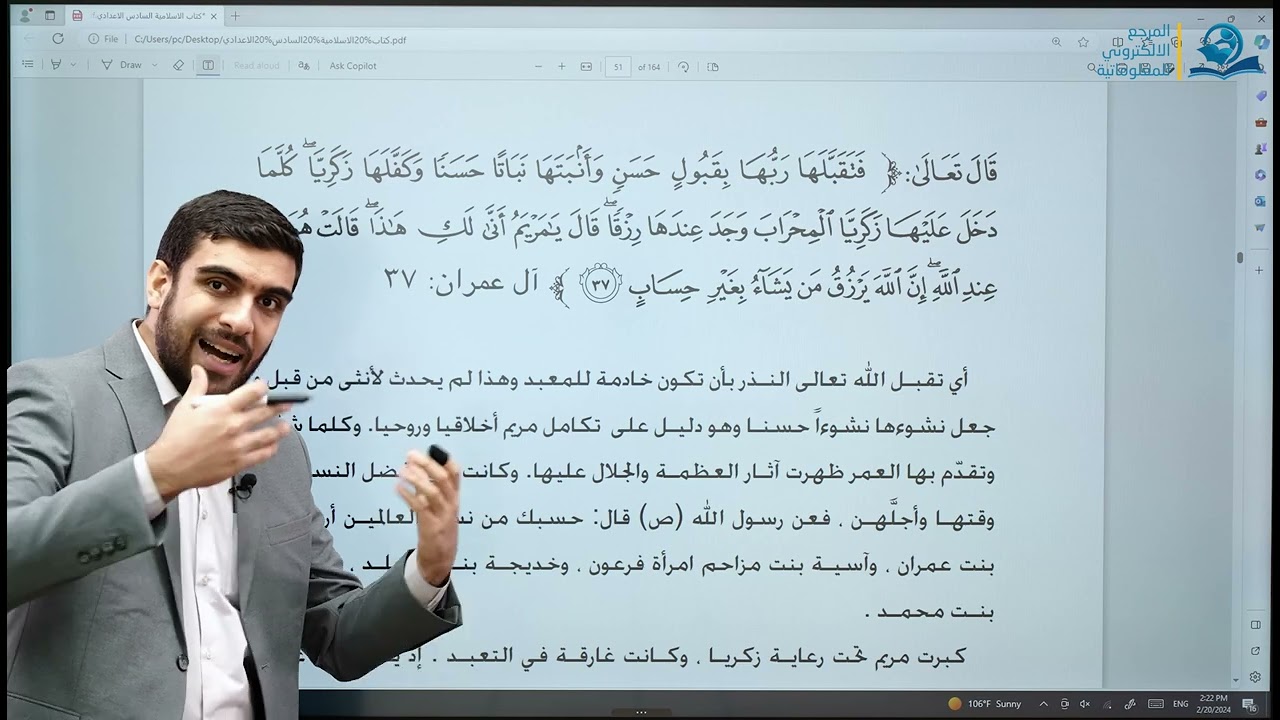 كتاب الاسلامية السادس الاعدادي
File
C:/Users/pc/Desktop/كتاب%20الاسلامية%20السادس%20الاعدادي.pdf
المرجع
الالكتروني
للمعلوماتية
Draw
Read aloud
Ask Copilot
51 of 164
قَالَ تَعَالَىٰ: ﴿ فَتَقَبَّلَهَا رَبُّهَا بِقَبُولٍ حَسَنٍ وَأَنۢبَتَهَا نَبَاتًا حَسَنًا وَكَفَّلَهَا زَكَرِيَّا ۖ كُلَّمَا
دَخَلَ عَلَيْهَا زَكَرِيَّا ٱلْمِحْرَابَ وَجَدَ عِندَهَا رِزْقًا ۖ قَالَ يَٰمَرْيَمُ أَنَّىٰ لَكِ هَٰذَا ۖ قَالَتْ
عِندِ ٱللَّهِ ۖ إِنَّ ٱللَّهَ يَرْزُقُ مَن يَشَآءُ بِغَيْرِ حِسَابٍ ٣٧ ﴾ آل عمران: ٣٧
أي تقبل الله تعالى النذر بأن تكون خادمة للمعبد وهذا لم يحدث لأنثى من قبل
جعل نشوءها نشوءاً حسنا وهو دليل على تكامل مريم أخلاقيا وروحيا. وكلما
وتقدّم بها العمر ظهرت آثار العظمة والجلال عليها. وكانت
وقتها وأجلَّهن . فعن رسول الله (ص) قال: حسبك من العالمين
بنت عمران . وآسية بنت مزاحم امرأة فرعون . وخديجة
بنت محمد .
كبرت مريم تحت رعاية زكريا . وكانت غارقة في التعبد .
106°F Sunny
ENG
2:22 PM
2/20/2024